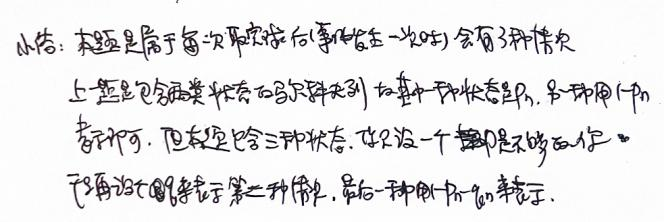 小结：本题是属于每次取完球后(事件发生一次时)会有3种情况
上一题是包含两类状态的马尔科夫列 故其中一种状态是Pn，另一种用1-Pn
表示即可，但本题包含三种状态，你只设一个 即是不够的，你
还再设个qn来表示第二种情况，最后一种用1-Pn-qn来表示．